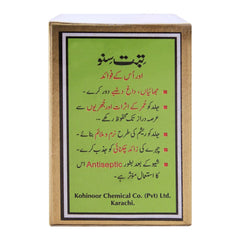 تبت سنو
اور اُس کے فوائد
چھائیاں، داغ دھبے دور کرے۔
جلد کو عمر کے اثرات اور جھریوں سے
عرصہ دراز تک محفوظ رکھے۔
جلد کو ریشم کی طرح نرم و ملائم بنائے۔
چہرے کی زائد چکنائی کو جذب کرے۔
شیو کے بعد بطور Antiseptic اس
کا استعمال مؤثر ہے۔
Kohinoor Chemical Co. (Pvt) Ltd.
Karachi.